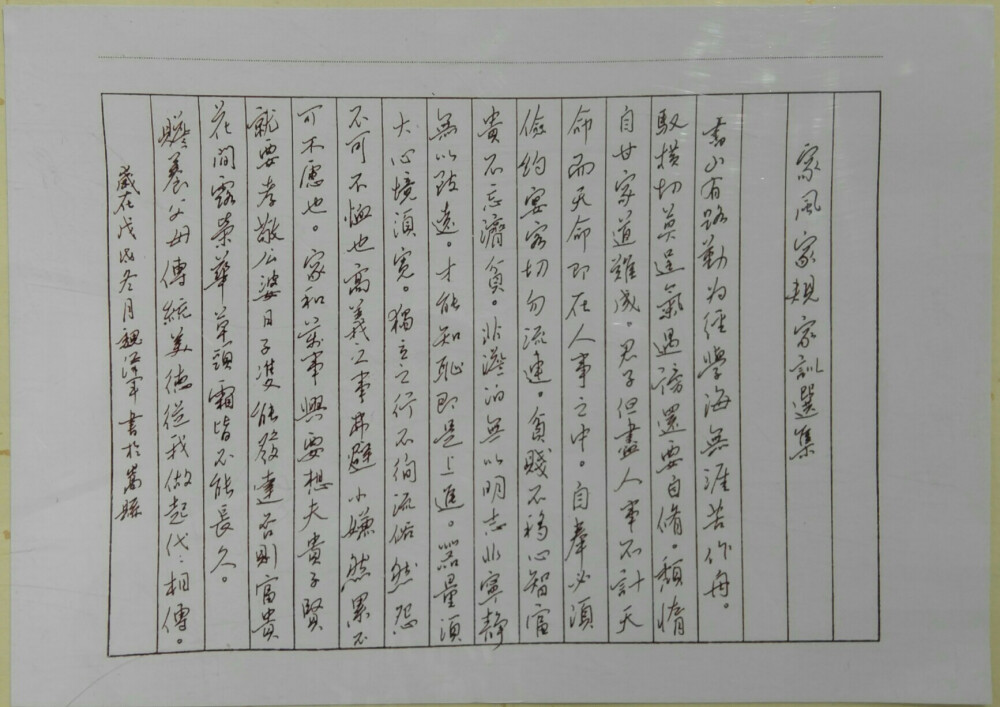 家風家規家訓選集
書山有路勤为徑學海無涯苦作舟。
馭橫切莫逞氣遇謗還要自脩。頹惰
自甘家道難成。君子但盡人事不計天
命而天命即在人事之中。自奉必須
儉約宴客切勿流連。貧賤不移心智富
貴不忘濟貧。非澹泊無以明志非寧静
無以致遠。才能知恥即是上進。器量須
大心境須寬。獨立之行不徇流俗然怨
不可不恤也高義之事不避小嫌然累不
可不慮也。家和萬事興要想夫貴子賢
就要孝敬公婆日子雙能發達否則富貴
花間露榮華草頭霜皆不能長久。
贍養父母傳統美德從我做起代〻相傳。
歲在戊戌冬月魏 軍書於嵩縣